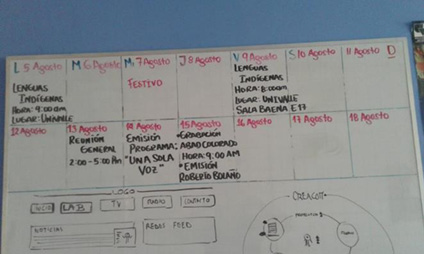 L 5 Agosto
M 6 Agosto
Mi 7 Agosto
J 8 Agosto
V 9 Agosto
S 10 Agosto
11 Agosto D
LENGUAS
INDÍGENAS
HORA: 9:00 am
LUGAR: UNIVALLE
FESTIVO
LENGUAS
INDÍGENAS
HORA: 8:00am
LUGAR: UNIVALLE
SALA BAENA E17
12 Agosto
13 Agosto
REUNIÓN
GENERAL
2:00 - 5:00 Pm
14 Agosto
EMISIÓN
PROGRAMA:
"UNA SOLA
VOZ"
15 Agosto
*GRABACIÓN
ABAD COLORADO
HORA: 9:00 AM
*EMISIÓN
ROBERTO BOLAÑO
16 Agosto
17 Agosto
18 Agosto
LOGO
INICIO
LAB
TV
RADIO
CONTACTO
NOTICIAS
REDAS FOTO
CREACOM